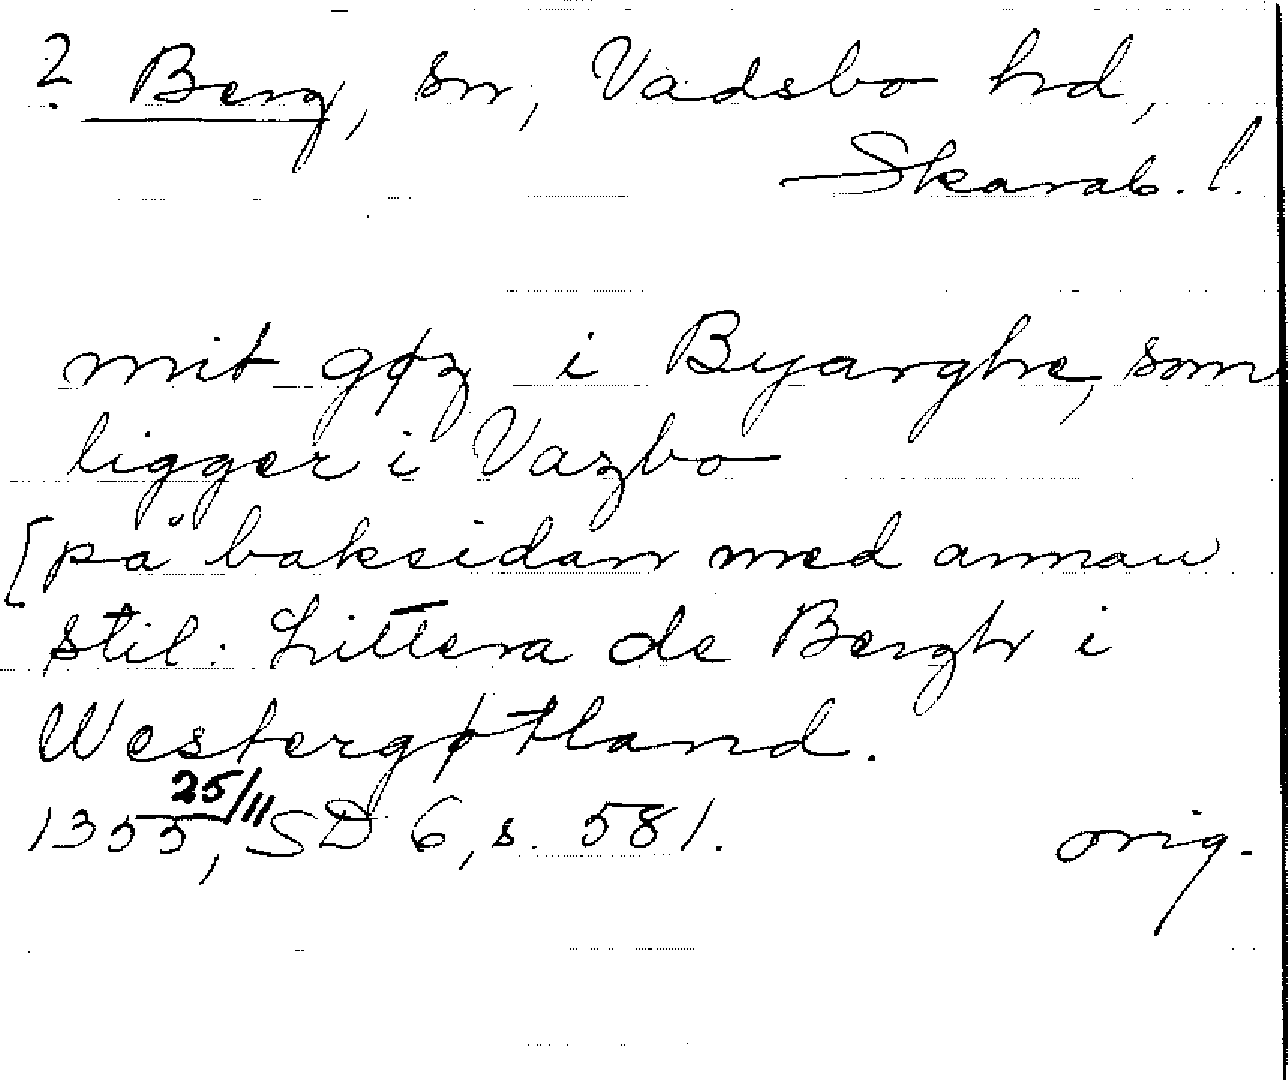 ? Berg, sn, Vadsbo hd,
Skarab. l.
mit gøz i Byarghe, som
ligger i Vazbo
[på baksidan med annan
stil: Littera de Bergh i
Westergøtland.
25/11
1355, SD 6, s. 581. orig.